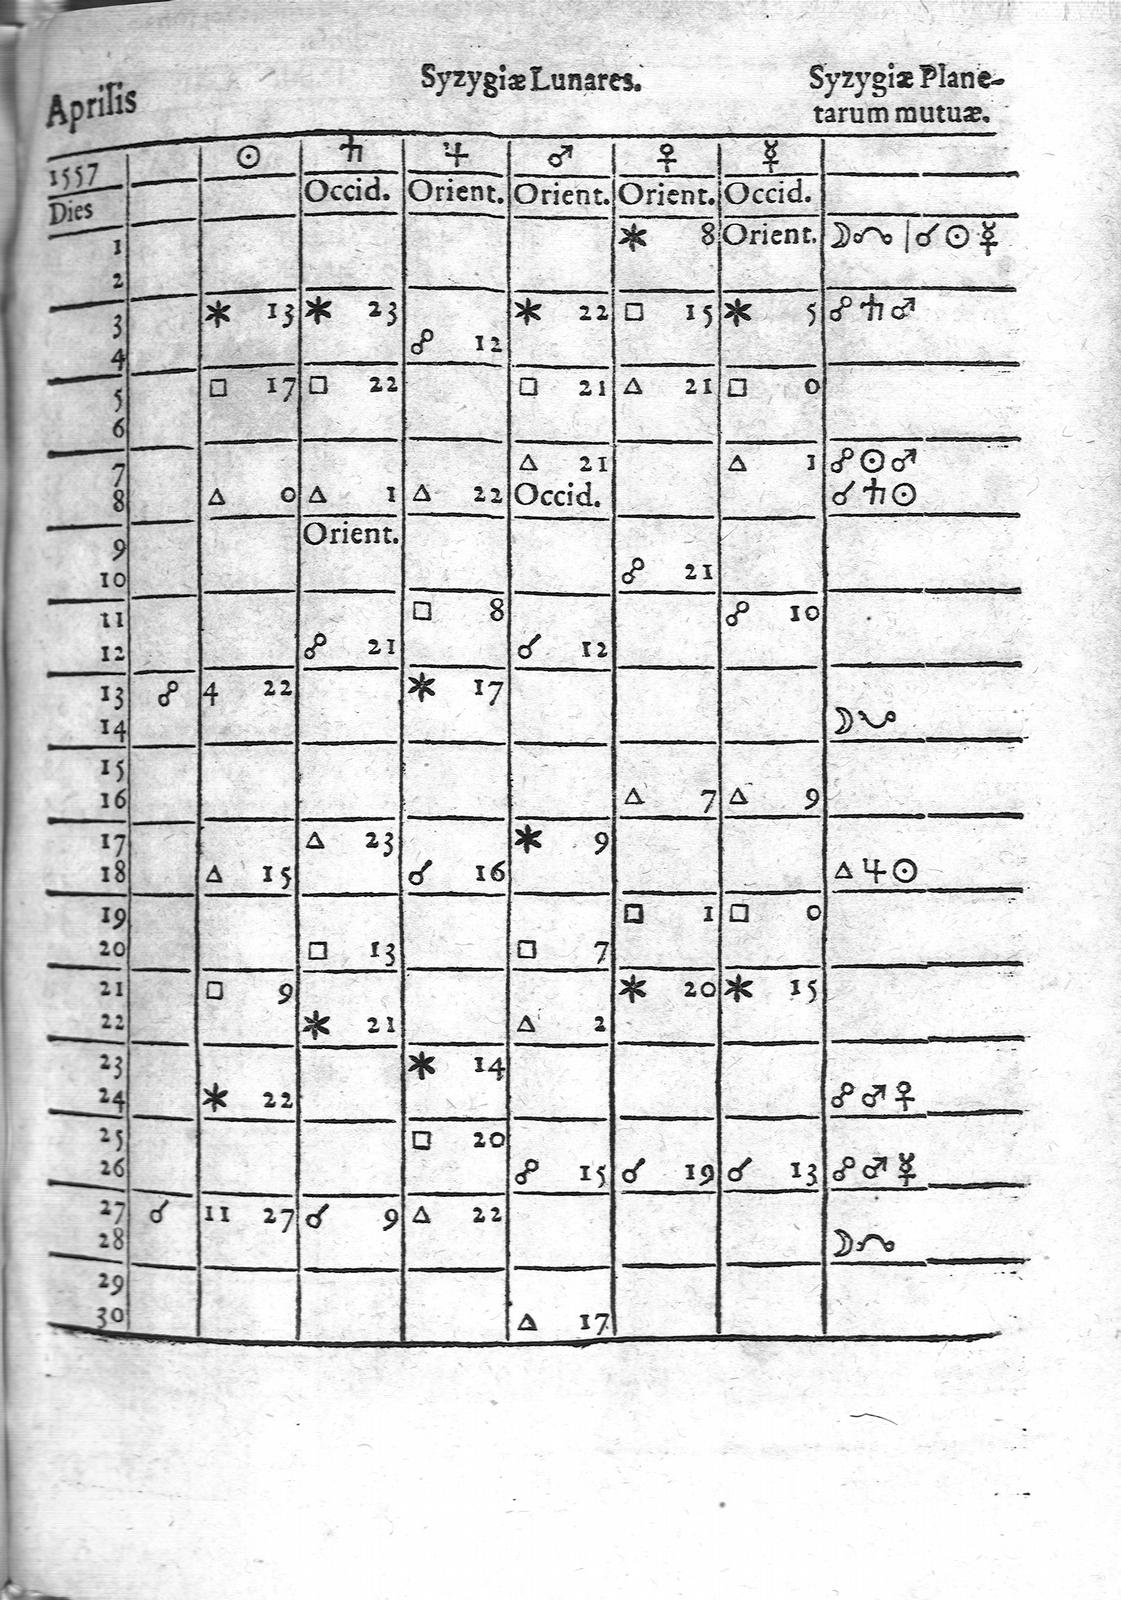 Aprilis Syzygiæ Lunares. Syzygiæ Plane-
tarum mutuæ.
1557 ☉ ♄ ♃ ♂ ♀ ☿
Dies Occid. Orient. Orient. Orient. Occid.
1 ⚹ 8 Orient. ☽☊ | ☌ ☉ ☿
2
3 ⚹ 13 ⚹ 23 ⚹ 22 □ 15 ⚹ 5 ☍ ♄ ♂
4 ☍ 12
5 □ 17 □ 22 □ 21 △ 21 □ 0
6
7 △ 21 △ 1 ☍ ☉ ♂
8 △ 0 △ 1 △ 22 Occid. ☌ ♄ ☉
9 Orient.
10 ☍ 21
11 □ 8 ☍ 10
12 ☍ 21 ☌ 12
13 ☍ 4 22 ⚹ 17
14 ☽☋
15
16 △ 7 △ 9
17 △ 23 ⚹ 9
18 △ 15 ☌ 16 △ ♃ ☉
19 □ 1 □ 0
20 □ 13 □ 7
21 □ 9 ⚹ 20 ⚹ 15
22 ⚹ 21 △ 2
23 ⚹ 14
24 ⚹ 22 ☍ ♂ ♀
25 □ 20
26 ☍ 15 ☌ 19 ☌ 13 ☍ ♂ ☿
27 ☌ 11 27 ☌ 9 △ 22
28 ☽☊
29
30 △ 17